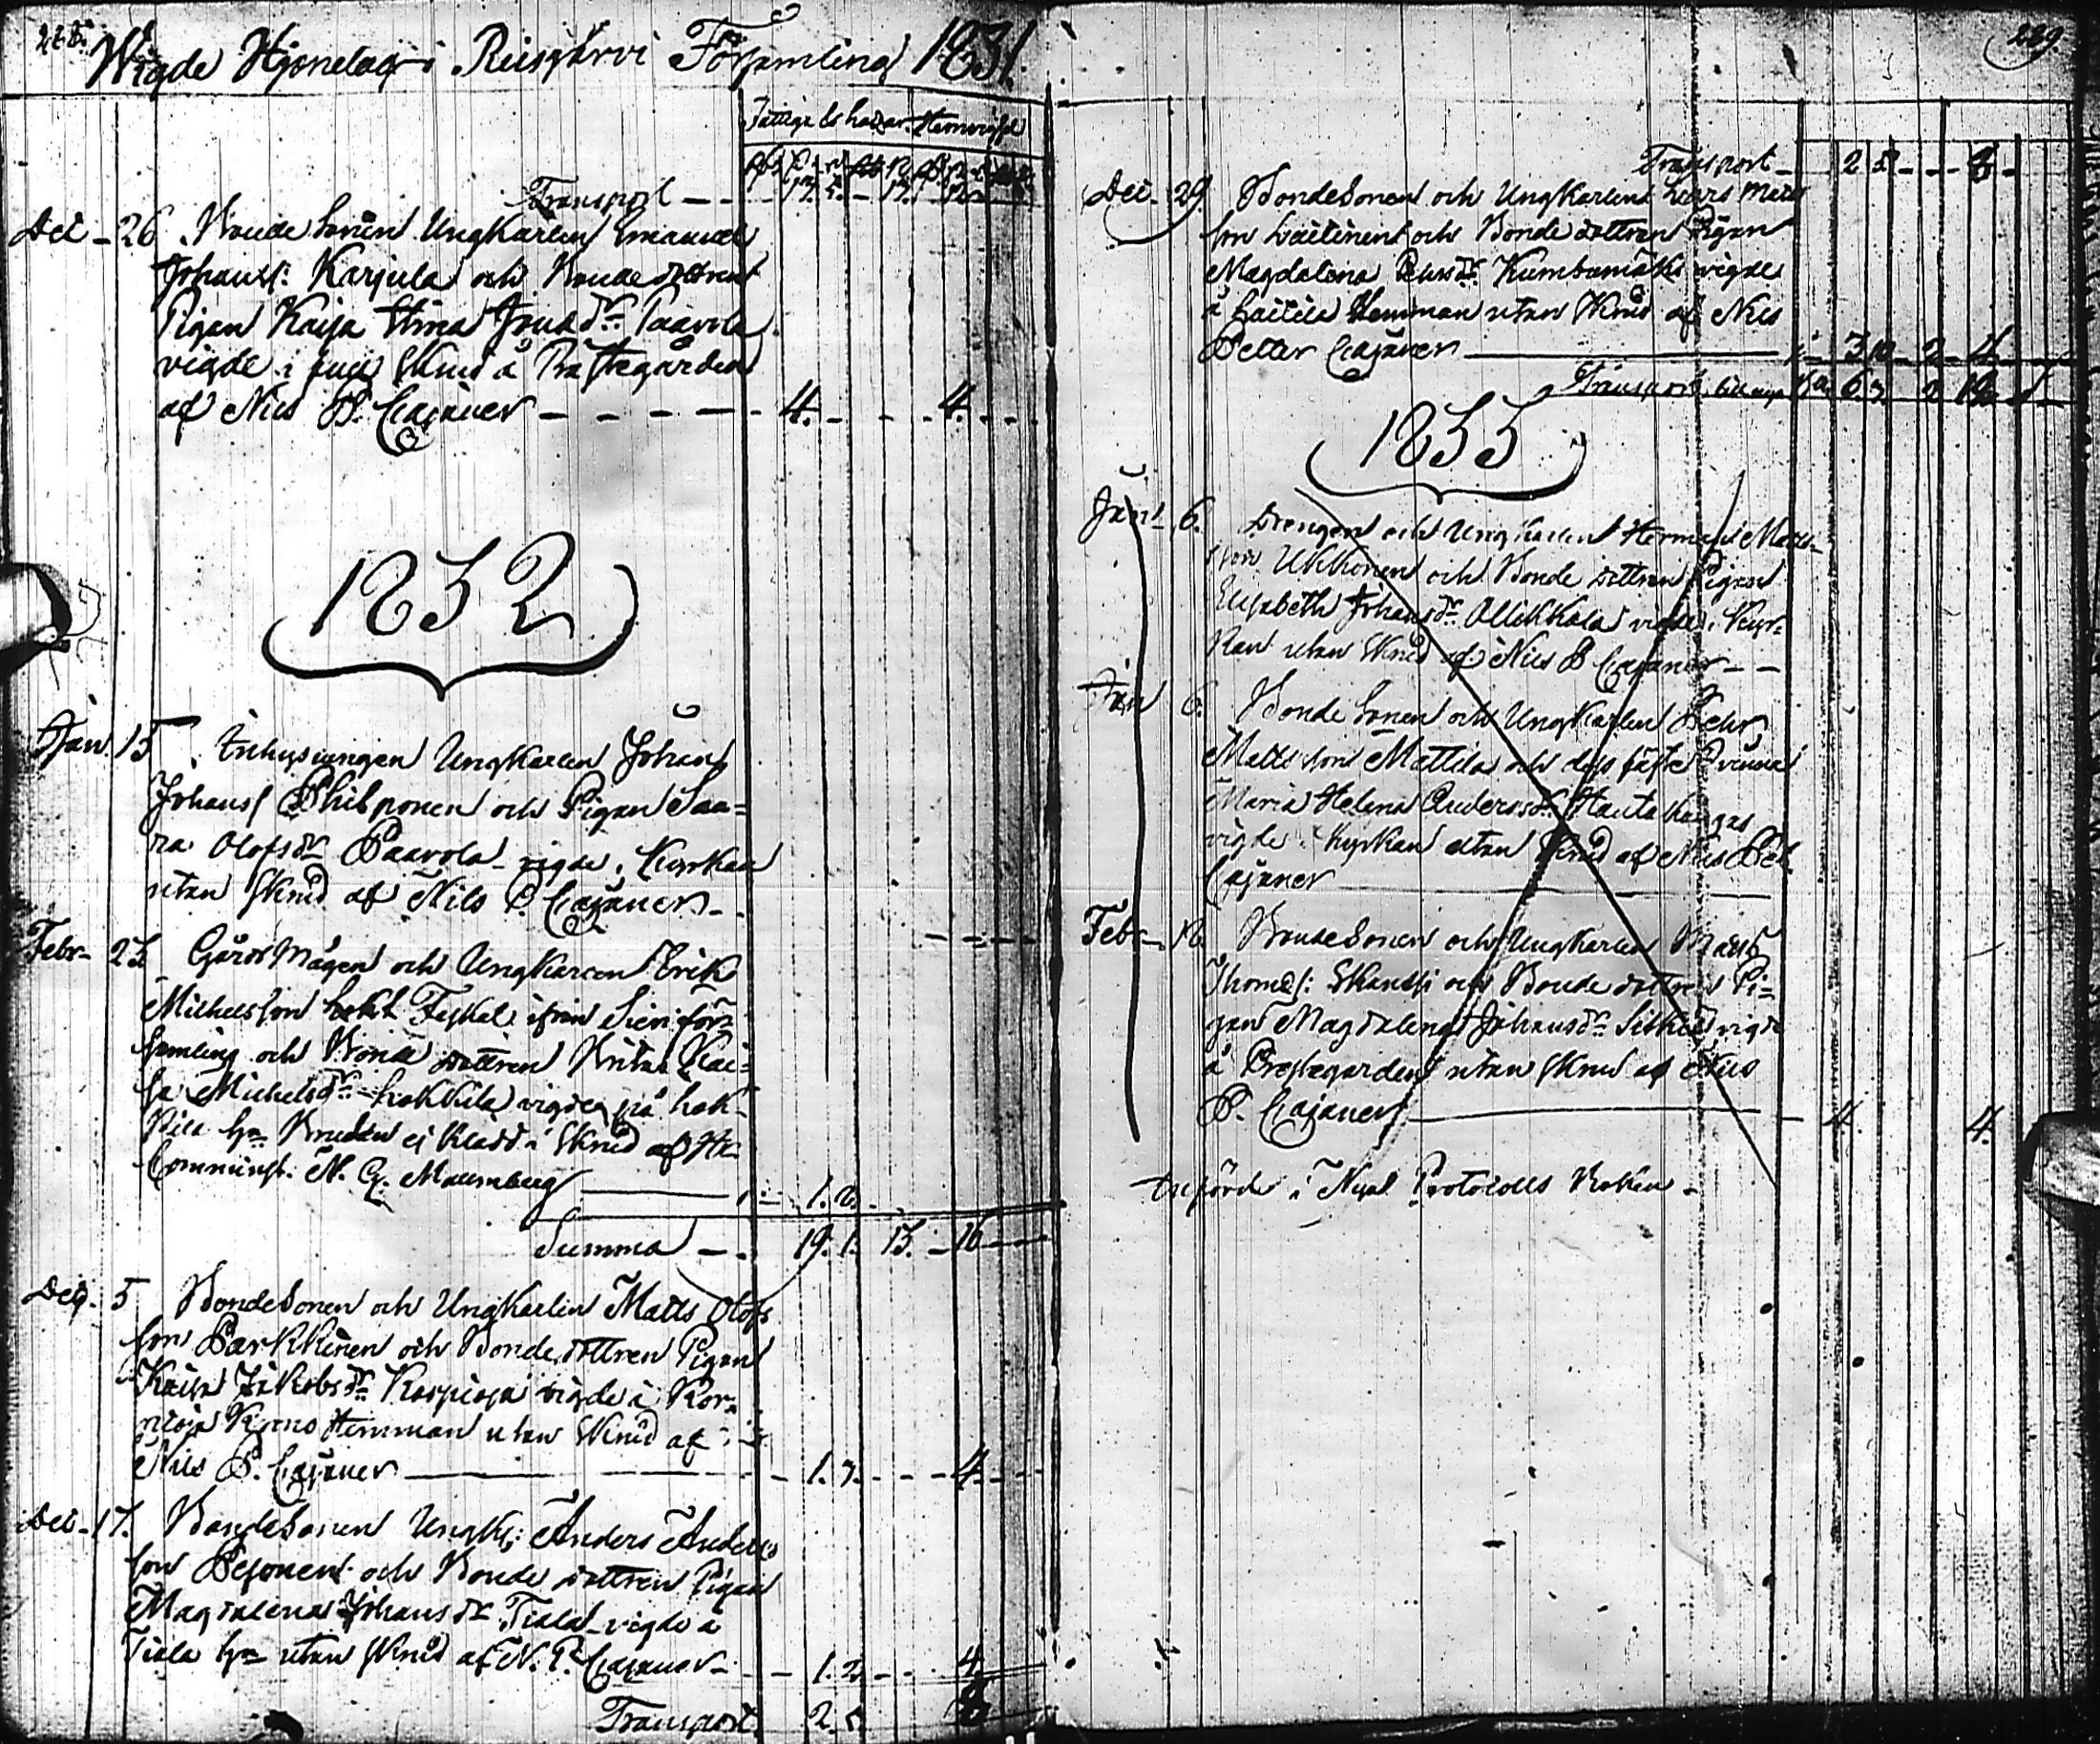 Wigde Hjonelag i Reisjärvi Församling 1831.
Fattige Cassan
Transport
Dec - 26 Bonde Sonen Ungkarlen Emanuel
Johanss: Karjula och Bondedottren
Pigan Kaisa Stina Jonsdr Paavola
vigde i full Skrud å Prästegården
af Nils P. Cajaner - - - - 4. - - 4. - -
1832
Jan. 15 Inhysingen Ungkarlen Johan
Johanss Philponen och Pigan Saa=
ra Olofsdr Paavola vigde i Kyrkan
utan Skrud af Nils P. Cajaner -
Febr - 23 Gårds Mågen och Ungkarlen Erik
Michelsson ifrån Sievi för=
samling och Bonde dottren Kai=
sa Michelsdr Kokkila vigde på Kok=
kila hn Bruden ej klädd i Skrud af
N. G. Malmberg
Summa - 19. 1. 13. - 16
Dec. 5 Bonde Sonen och Ungkarlen Matts Olofs
son Parkkinen och Bonde dottren Pigan
Kaisa Jakobsdr Korpioja vigde å Kor=
pioja Hemman utan Skrud af
Nils P. Cajaner - 1. 7. - - - 4. - -
Dec - 17. Bonde Sonen Ungk: Anders Anders
son Pesonen och Bonde dottren Pigan
Magdalena Johansdr Tiala vigde å
Tiala hn utan Skrud af N. P. Cajaner - - 1. 2. - - 4
Transport. 2. 5. 8
239
Transport - 2 5 - - - 8 -
Dec - 29. Bonde Sonen och Ungkarlen Lars Matts
son Laitinen och Bonde dottren Pigan
Magdalena Pehrsdr Kumbumäki vigde
å Laitila Hemman utan Skrud af Nils
Petter Cajaner - 3 10 - 2 - 4
Transport
1833
Jan - 6. Drengen och Ungkarlen Herman Matts=
son Ukkonen och Bonde dottren Pigan
Elisabeth Johansdr Ollikkala vigde i Kyr=
kan utan Skrud af Nils P Cajaner - -
Jan 6. Bonde Sonen och Ungkarlen Pehr
Mattsson Mattila och dess fäste Qvinna
Maria Helena Andersdr Hautakangas
vigde i Kyrkan utan Skrud af Nils Pet.
Cajaner
Feb - Bonde Sonen och Ungkarlen Matts
Thomass: Skantsi och Bonde dottren Pi=
gan Magdalena Johansdr vigde
å Prestegården utan Skrud af Nils
P. Cajaner - 4. 4.
Införde i Nya Protocolls Boken -